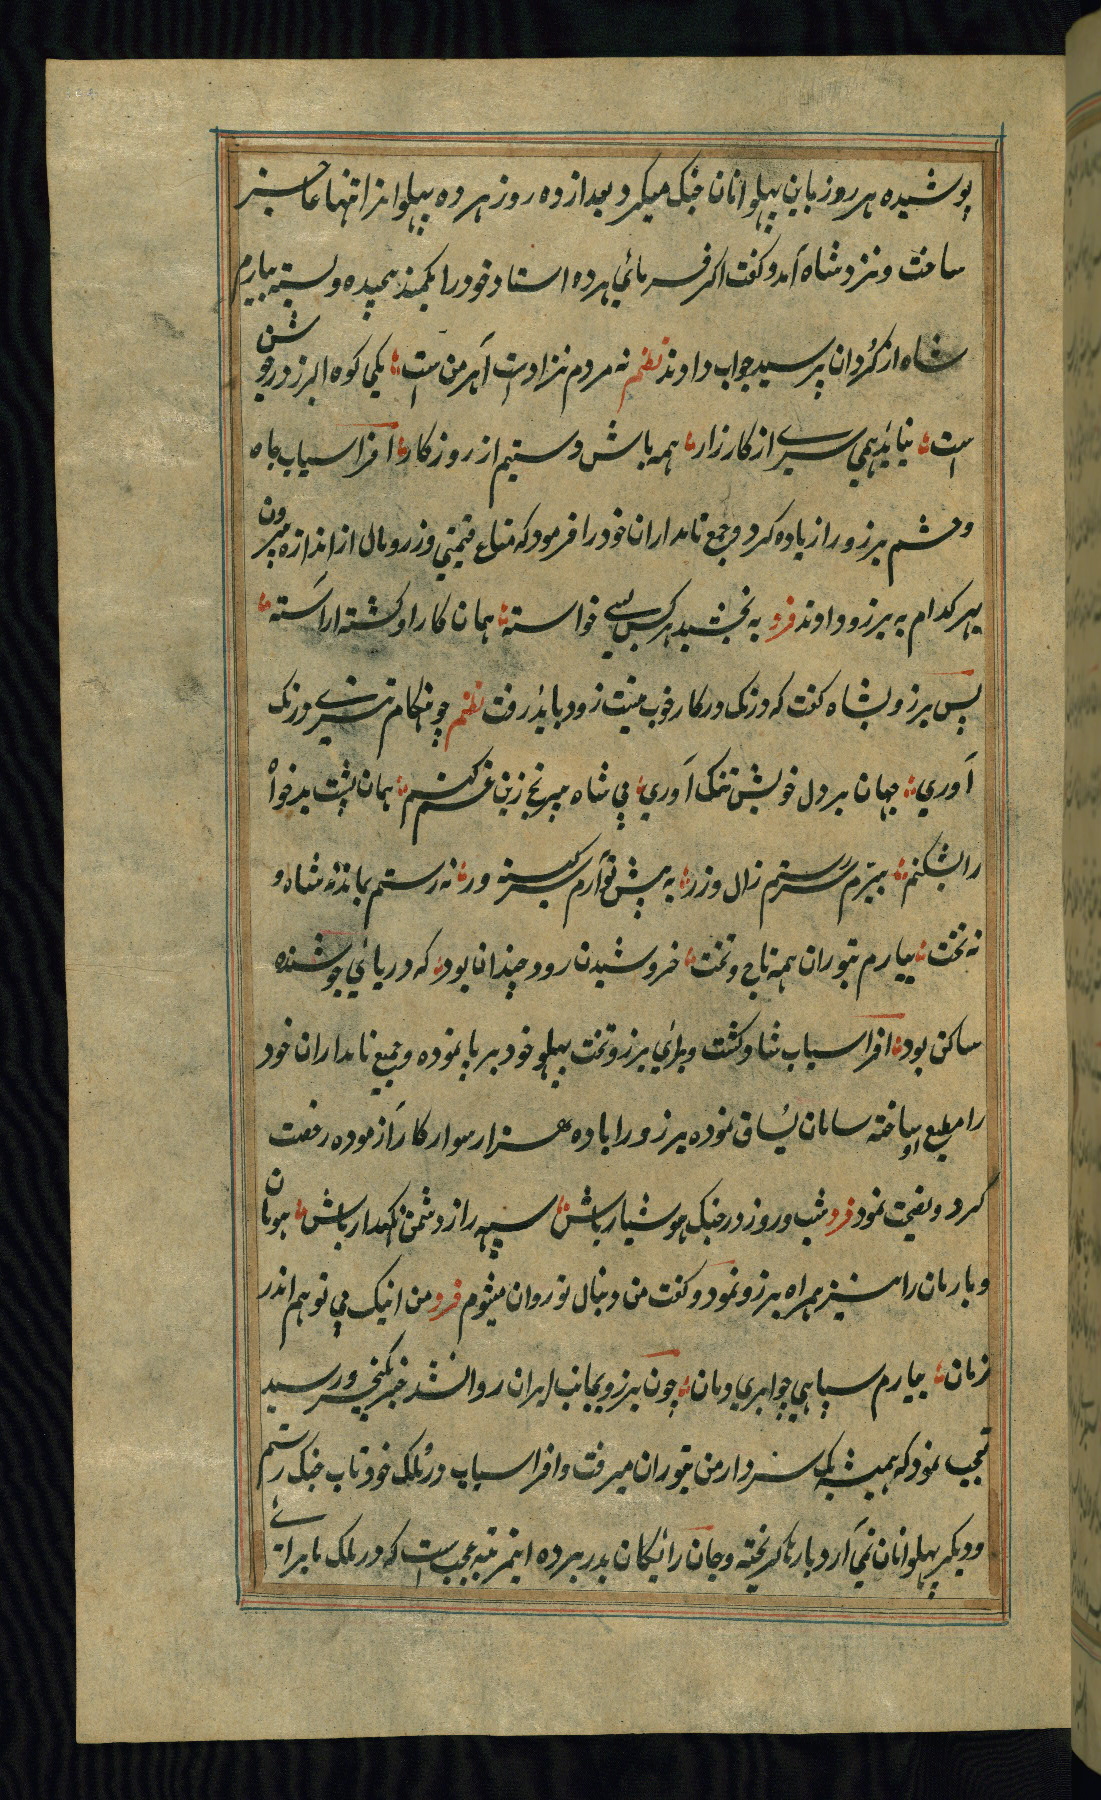 پوشیده هر روز باین پهلوانان جنک میکرد بعد از ده روز هر ده پهلوانرا تنها عاجز
ساخت و نزد شاه آمد و کفت اکر فرمائی هر ده استاد خود را بکمند پیچیده و بسته بیارم
شاه از کردان پرسید جواب دادند نظم نه مردم نژادست آهرمن است یکی کوه البرز در جوشن
است نیاید همی سیری از کارزار همه باش و ستیم از روزکار افراسیاب جاه
و حشم برزو را زیاده کرد و جمع نامداران خود را فرمود که متاع قیمتی و زر و مال از اندازه بیرون
هر کدام به برزو دادند فرو به بخشید هر کس بسی خواسته همان کار او کشته اراسته
پس برزو بشاه کفت که درنک در کار خوب نیست زود باید رفت نظم چو هنکام تیزی درنک
آوری جهان بر دل خویش تنک آوری پی شاه میرنج زین غم کنم همان پشت بدخواه
را بشکنم ببرم سر رستم زال وزر به پیش تو آرم کمر نه رستم بماند نه شاه و
نه تخت بیارم بتوران همه تاج و تخت خروشیدن رود چندان بود که دریای جوشنده
ساکن بود افراسیاب شاد کشت و برای برزو تخت پهلو خود برپا نموده و جمیع نامداران خود
را مطیع او ساخته سامان یساق نموده برزو را با ده هزار سوار کار آزموده رخصت
کرد و نصیحت نمود فرد شب و روز در جنک هوشیار باش سپه را ز دشمن نکهدار باش هومان
و بارمان را نیز همراه برزو نمود و کفت من دنبال تو روان میشوم فرو من اینک پی تو هم اندر
زمان بیارم سپاهی چو ابری دمان چون برزو بجانب ایران روانشد خبر بکیخسرو رسید
تعجب نمود که همیشه یک سردار من بتوران میرفت و افراسیاب در ملک خود تاب جنک رستم
و دیکر پهلوانان نمی آرد بارها کریخته و جان رائیکان بدر برده اینمرتبه عجب است که در ملک ما برائے